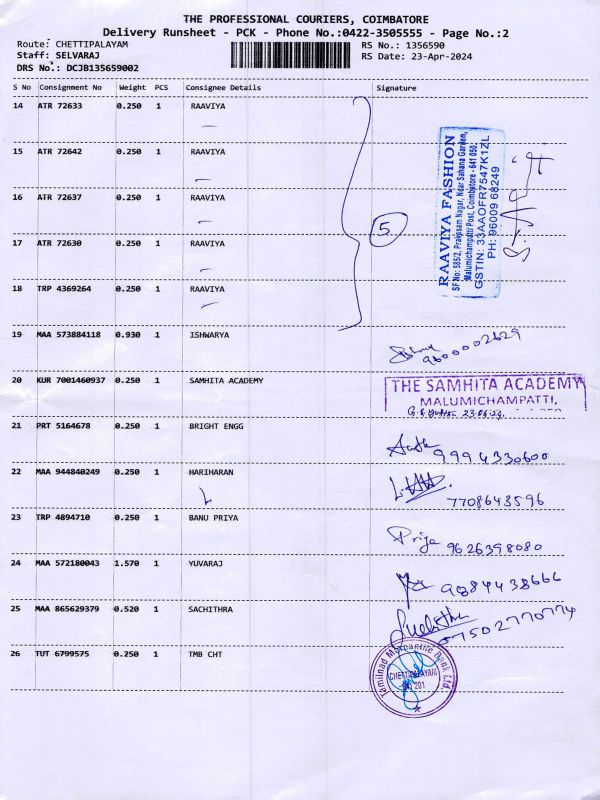 THE PROFESSIONAL COURIERS, COIMBATORE
Delivery Runsheet - PCK - Phone No.:0422-3505555 - Page No.:2
Route: CHETTIPALAYAM
Staff: SELVARAJ
DRS No.: DCJB135659002
RS No.: 1356590
RS Date: 23-Apr-2024
S No Consignment No Weight PCS Consignee Details Signature
14 ATR 72633 0.250 1 RAAVIYA
15 ATR 72642 0.250 1 RAAVIYA
16 ATR 72637 0.250 1 RAAVIYA
17 ATR 72630 0.250 1 RAAVIYA
18 TRP 4369264 0.250 1 RAAVIYA
5
RAAVIYA FASHION
SF No: 585/2, Prakasam Nagar, Near Sahana Garden,
Malumichampatti Post, Coimbatore - 641 050.
GSTIN: 33AAOFR7547K1ZL
PH: 96009 68249
19 MAA 573884118 0.930 1 ISHWARYA
9600002629
20 KUR 7001460937 0.250 1 SAMHITA ACADEMY
THE SAMHITA ACADEMY
MALUMICHAMPATTI,
21 PRT 5164678 0.250 1 BRIGHT ENGG
9994330600
22 MAA 944840249 0.250 1 HARIHARAN
7708643596
23 TRP 4894710 0.250 1 BANU PRIYA
Priya 9626398080
24 MAA 572180043 1.570 1 YUVARAJ
9884438666
25 MAA 865629379 0.520 1 SACHITHRA
07502770774
26 TUT 6799575 0.250 1 TMB CHT
Tamilnad Mercantile Bank Ltd.
CHETTIPALAYAM